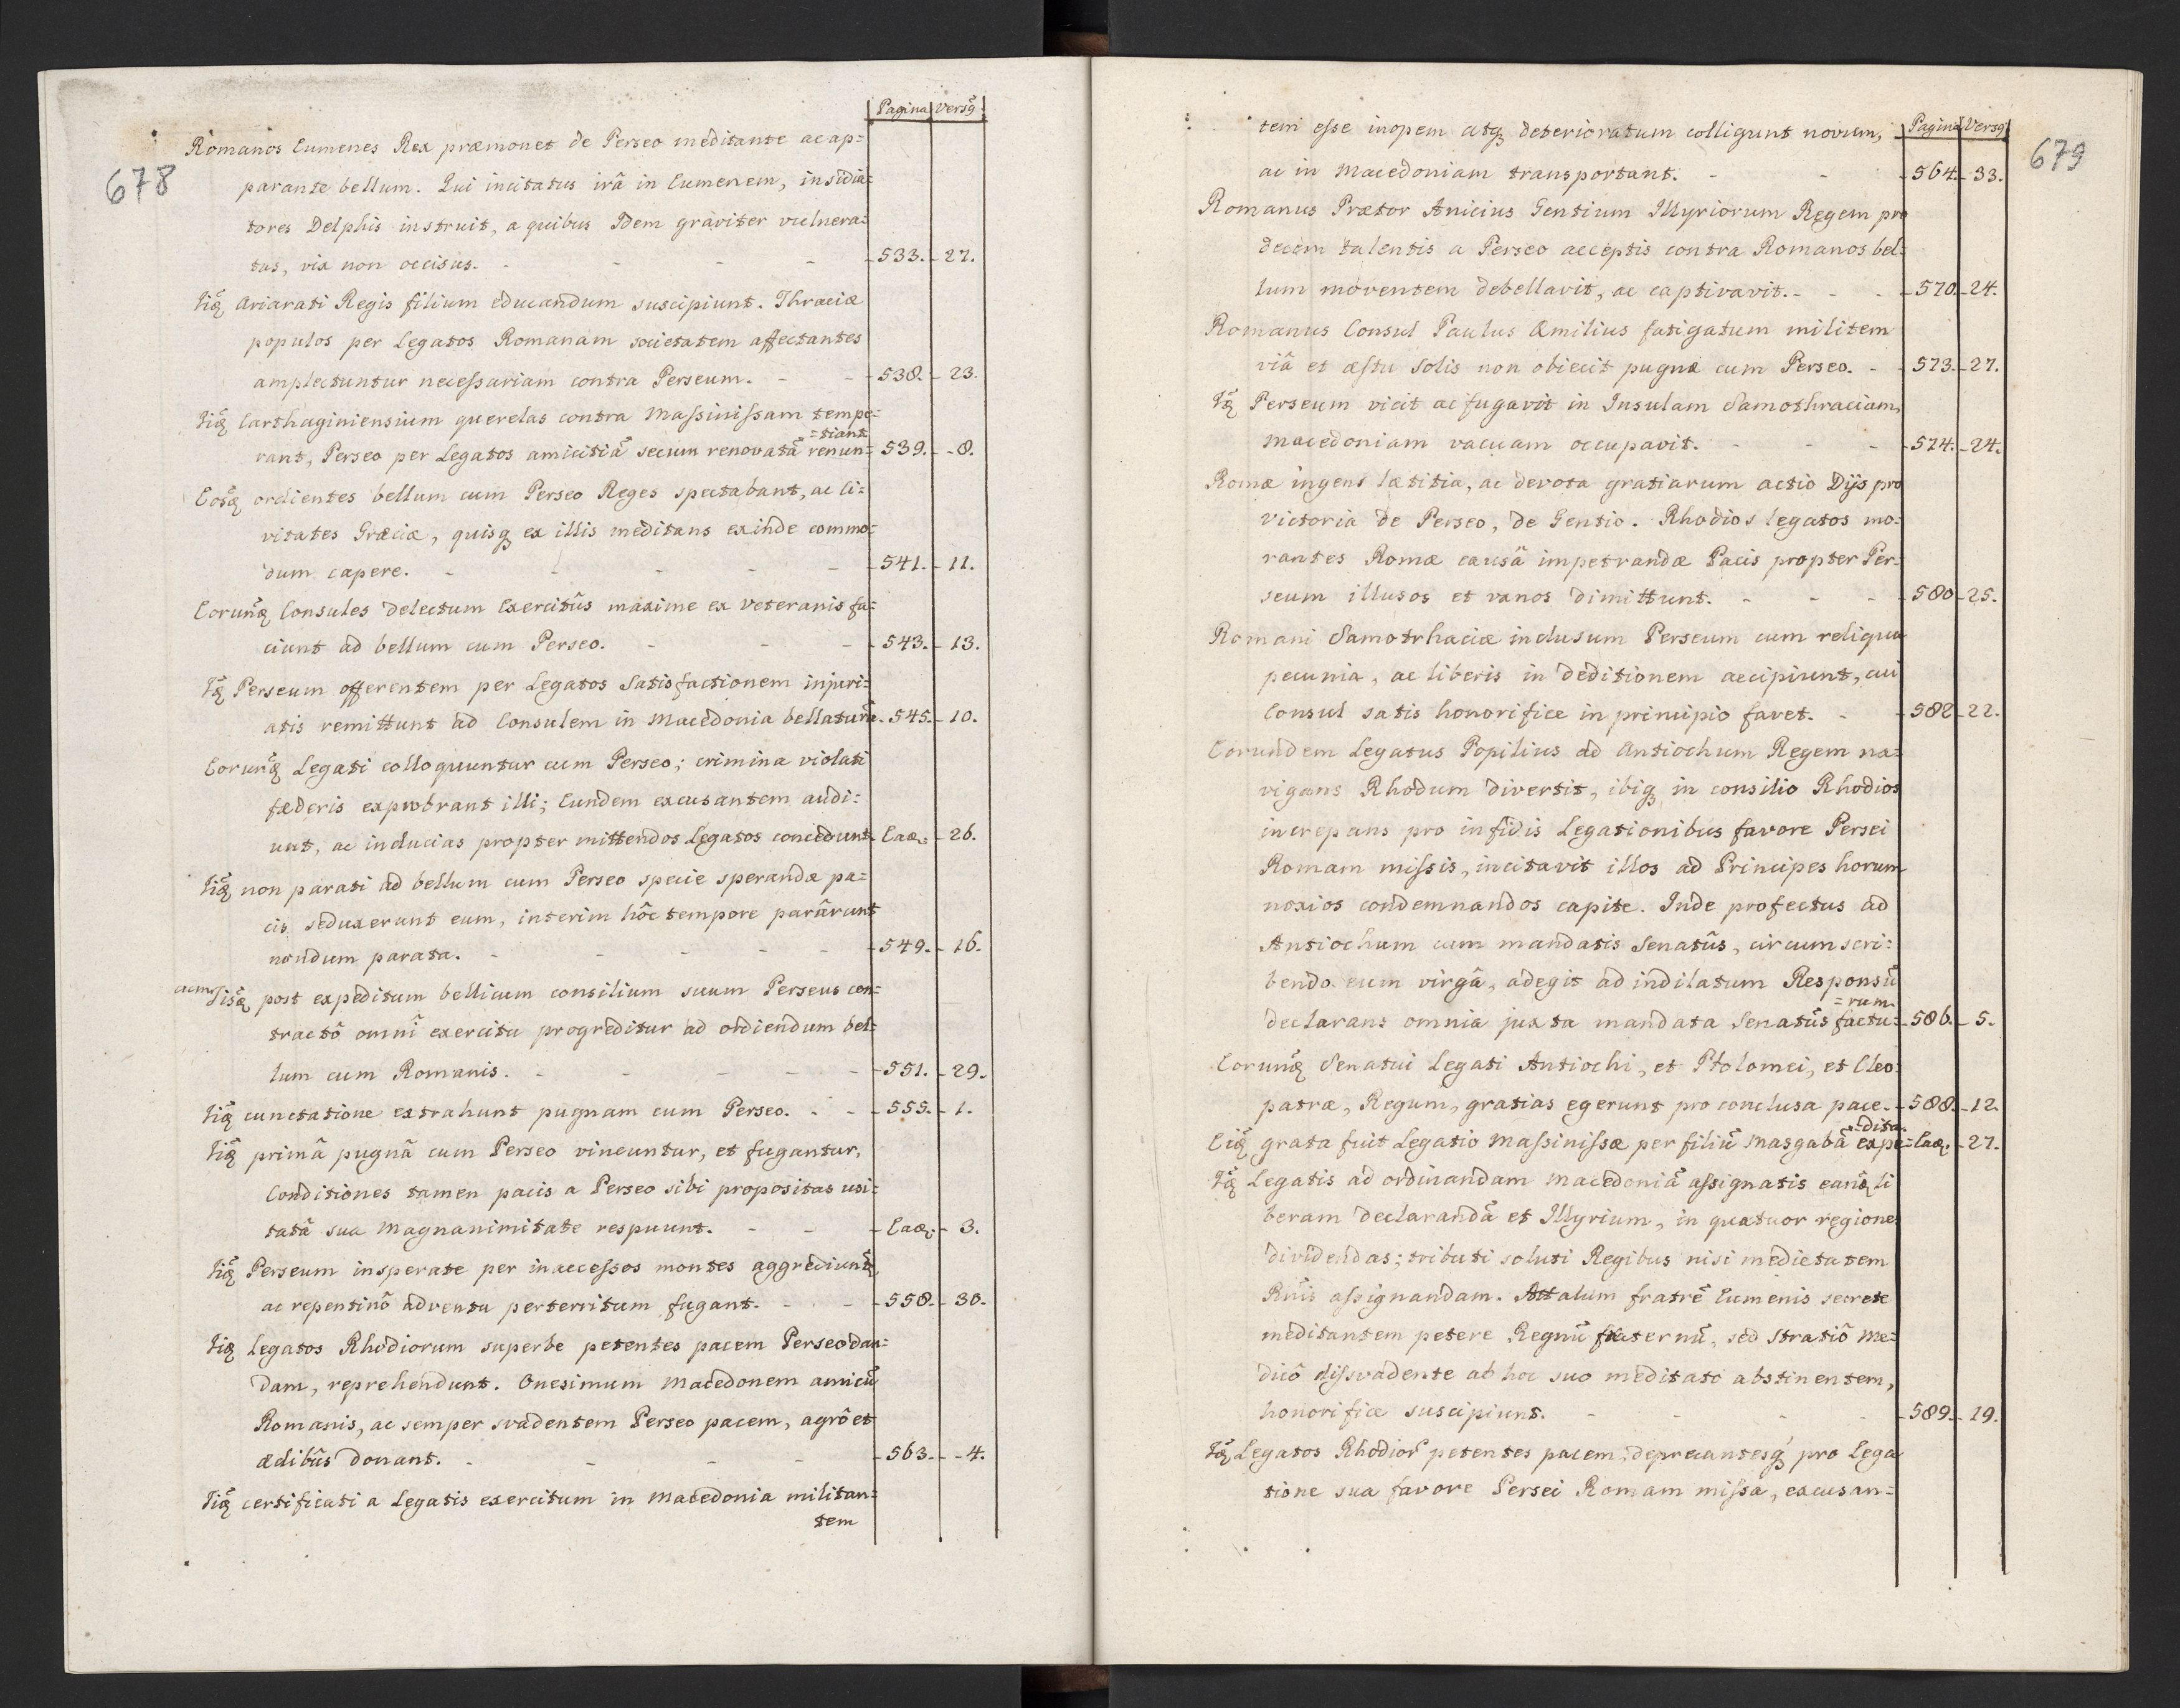 678
Pagina Versꝰ
Romanos Eumenes Rex præmonet de Perseo meditante ac ap=
parante bellum. Qui incitatus irâ in Eumenem, insidia=
tores Delphis instruit, a quibus Idem graviter vulnera=
tus, vix non occisus. - - - - 533. - 27.
Iiq̃ Ariarati Regis filium educandum suscipiunt. Thraciæ
populos per Legatos Romanam societatem affectantes
amplectuntur necessariam contra Perseum. - - 538. - 23.
Iiq̃ Carthaginiensium querelas contra Massinissam tempe=
=tiant
rant, Perseo per Legatos amicitiã secum renovatã renun= 539. - 8.
Eosq̃ ordientes bellum cum Perseo Reges spectabant, ac Ci=
vitates Græciæ, quisq ex illis meditans exinde commo=
dum capere. - - - - - 541. - 11.
Eorunq̃ Consules delectum Exercitûs maxime ex Veteranis fa=
ciunt ad bellum cum Perseo. - - - 543. - 13.
Iq̃ Perseum offerentem per Legatos Satisfactionem injuri=
atis remittunt ad Consulem in Macedonia bellaturũ. 545. - 10.
Eorunq̃ Legati colloquuntur cum Perseo; crimina violati
fæderis exprobrant illi; Eundem excusantem audi=
unt, ac inducias propter mittendos Legatos concedunt. Eaq. - 26.
Iiq̃ non parati ad bellum cum Perseo specie sperandæ pa=
cis seduxerunt eum, interim hôc tempore parârunt
nondum parata. - - - - - 549. - 16.
cum Iisq̃ post expeditum bellicum consilium suum Perseus con=
tractô omnî exercitu progreditur ad ordiendum bel=
lum cum Romanis. - - - - - 551. - 29.
Iiq̃ cunctatione extrahunt pugnam cum Perseo. - - 555. - 1.
Iiq̃ primâ pugnâ cum Perseo vincuntur, et fugantur,
Conditiones tamen pacis a Perseo sibi propositas usi=
tatâ sua Magnanimitate respuunt. - - Eaq. - 3.
Iiq̃ Perseum insperate per inaccessos montes aggrediunt̃,
ac repentinô adventu perterritum fugant. - - 558. - 30.
Iiq̃ Legatos Rhodiorum superbe petentes pacem Perseo dan=
dam, reprehendunt. Onesimum Macedonem amicũ
Romanis, ac semper svadentem Perseo pacem, agrô et
ædibûs donant. - - - - 563. - 4.
Iiq̃ certificati a Legatis exercitum in Macedonia militan=
tem
679
Pagina Versꝰ
tem esse inopem atq deterioratum colligunt novum,
ac in Macedoniam transportant. - - 564. 33.
Romanus Prætor Anicius Gentium Illyriorum Regem pro
decem talentis a Perseo acceptis contra Romanos bel=
lum moventem debellavit, ac captivavit. - - - 570. 24.
Romanus Consul Paulus Æmilius fatigatum militem
viâ et æstu Solis non obiecit pugnæ cum Perseo. - - 573. 27.
Iq̃ Perseum vicit ac fugavit in Insulam Samothraciam,
Macedoniam vacuam occupavit. - - - 574. 24.
Romæ ingens lætitia, ac devota gratiarum actio Dijs pro
victoria de Perseo, de Gentio. Rhodios legatos mo=
rantes Romæ causâ impetrandæ Pacis propter Per=
seum illusos et vanos dimittunt. - - - 580 - 25.
Romani Samotrhaciæ inclusum Perseum cum reliqua
pecunia, ac liberis in deditionem accipiunt, cui
Consul satis honorifice in principio favet. - 582 - 22.
Eorundem Legatus Popilius ad Antiochum Regem na=
vigans Rhodum divertit, ibiq in consilio Rhodios
increpans pro infidis Legationibus favore Persei
Romam missis, incitavit illos ad Principes horum
noxios condemnandos capite. Inde profectus ad
Antiochum cum mandatis Senatûs, circumscri=
bendo eum virgâ, adegit ad indilatum Responsũ
=rum.
declarans omnia juxta mandata Senatûs factu= 586. - 5.
Eorunq̃ Senatui Legati Antiochi, et Ptolomei, et Cleo=
patræ, Regum, gratias egerunt pro conclusa pace. - 588. - 12.
=dita.
Eiq̃ grata fuit Legatio Massinissæ per filiũ Masgabã expe= Eaq. - 27.
Iq̃ Legatis ad ordinandam Macedoniã assignatis eanq̃ li
beram declarandã et Illyrium, in quatuor regiones
dividendas; tributi soluti Regibus nisi medietatem
Rñis assignandam. Attalum fratrẽ Eumenis secrete
meditantem petere Regnũ fraternũ, sed Stratiô Me=
dicô dissvadente ab hoc suo meditato abstinentem,
honorifice suscipiunt. - - - - 589. - 19.
Iq̃ Legatos Rhodior̃ petentes pacem, deprecantesq̃ pro Lega
tione sua favore Persei Romam missa, excusan=